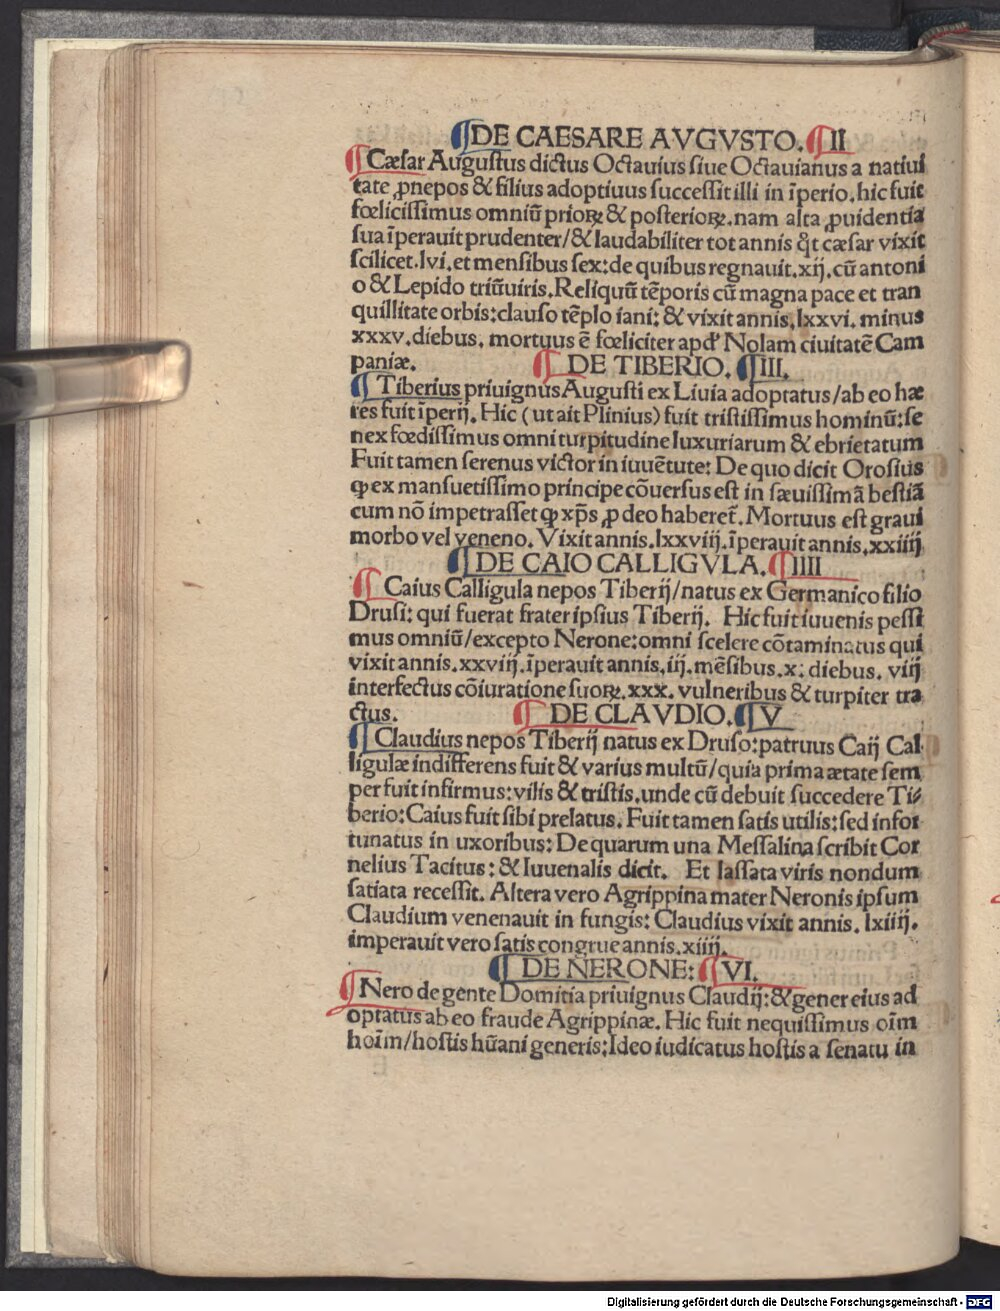 ¶DE CAESARE AVGVSTO.¶II
¶Cæsar Augustus dictus Octauius siue Octauianus a natiui
tate ꝓnepos & filius adoptiuus successit illi in īperio.hic fuit
fœlicissimus omniū prioꝝ & posterioꝝ.nam alta ꝓuidentia
sua īperauit prudenter/& laudabiliter tot annis q̇t cæsar vixit
scilicet.lvi.et mensibus sex:de quibus regnauit.xij.cū antoni
o & Lepido triūuiris.Reliquū tēporis cū magna pace et tran
quillitate orbis:clauso tēplo iani: & vixit annis.lxxvi. minus
xxxv.diebus. mortuus ē fœliciter apd' Nolam ciuitatē Cam
paniæ. ¶ DE TIBERIO. ¶III.
¶ Tiberius priuignus Augusti ex Liuia adoptatus/ab eo hæ
res fuit īperij. Hic (ut ait Plinius) fuit tristissimus hominū:se
nex fœdissimus omni turpitudine luxuriarum & ebrietatum
Fuit tamen serenus victor in iuuētute: De quo dicit Orosius
ꝙ ex mansuetissimo principe cōuersus est in sæuissimā bestiā
cum nō impetrasset ꝙ xp̄s ꝓ deo haberet̄. Mortuus est graui
morbo vel veneno. Vixit annis.lxxviij.īperauit annis.xxiiij
¶DE CAIO CALLIGVLA.¶IIII
¶ Caius Calligula nepos Tiberij/natus ex Germanico filio
Drusi: qui fuerat frater ipsius Tiberij. Hic fuit iuuenis pessi
mus omniū/excepto Nerone:omni scelere cōtaminatus qui
vixit annis.xxviij.īperauit annis.iij.mēsibus.x: diebus. viij
interfectus cōiuratione suoꝝ.xxx. vulneribus & turpiter tra
ctus. ¶ DE CLAVDIO.¶V
¶Claudius nepos Tiberij natus ex Druso:patruus Caij Cal
ligulæ indifferens fuit & varius multū/quia prima ætate sem
per fuit infirmus:vilis & tristis.unde cū debuit succedere Ti⸗
berio:Caius fuit sibi prelatus. Fuit tamen satis utilis:sed infor
tunatus in uxoribus: De quarum una Messalina scribit Cor
nelius Tacitus: & Iuuenalis dicit. Et lassata viris nondum
satiata recessit. Altera vero Agrippina mater Neronis ipsum
Claudium venenauit in fungis: Claudius vixit annis. lxiiij.
imperauit vero satis congrue annis.xiiij.
¶ DE NERONE:¶VI.
¶Nero de gente Domitia priuignus Claudij:& gener eius ad
optatus ab eo fraude Agrippinæ. Hic fuit nequissimus oīm
hoīm/hostis hūani generis:Ideo iudicatus hostis a senatu in
Digitalisierung gefördert durch die Deutsche Forschungsgemeinschaft - DFG